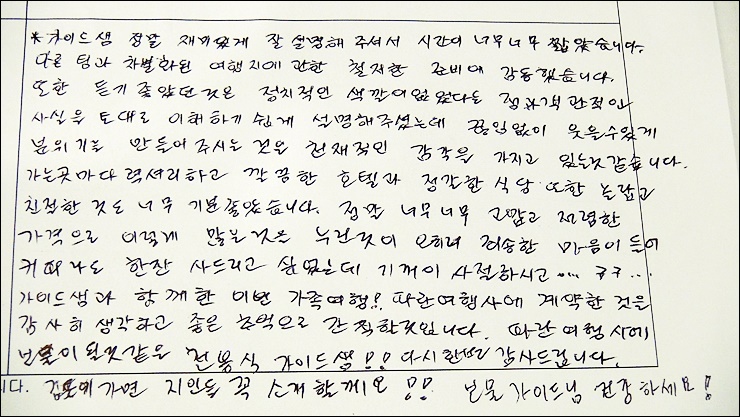 *가이드샘 정말 재미있게 잘 설명해 주셔서 시간이 너무너무 짧았습니다.
다른 팀과 차별화된 여행지에 관한 철저한 준비에 감동했습니다.
또한 듣기 좋았던것은 정치적인 색깔이없었다는 점과객관적인
사실을 토대로 이해하기 쉽게 설명해주셨는데 끊임없이 웃을수있게
분위기를 만들어 주시는 것은 천재적인 감각을 가지고 있는것같습니다.
가는곳마다 럭셔리하고 깔끔한 호텔과 정갈한 식당 또한 놀랍고
친절한 것도 너무 기분좋았습니다. 정말 너무너무 고맙고 저렴한
가격으로 이렇게 많은것을 누린것이 오히려 죄송한 마음이들어
커피라도 한잔 사드리고 싶었는데 기꺼이 사절하시고.... ㅋㅋ...
가이드샘과 함께한 이번 가족여행!! 파란여행사에 계약한 것을
감사히 생각하고 좋은 추억으로 간직할것입니다. 파란여행사에
보물이 될것같은 전용식 가이드샘!! 다시한번 감사드립니다.
니다. 가면 지인들 꼭 소개할께요 !! 보물가이드님 건강하세요!